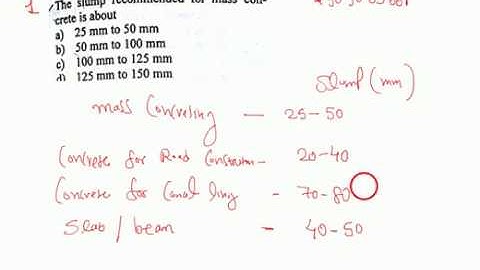 1 The slump recommended for mass con-
crete is about
a) 25 mm to 50 mm
b) 50 mm to 100 mm
c) 100 mm to 125 mm
d) 125 mm to 150 mm
Slump (mm)
mass Concreting — 25-50
Concrete for Road Construction - 20-40
Concrete for Canal lining - 70-80
Slab / beam - 40-50